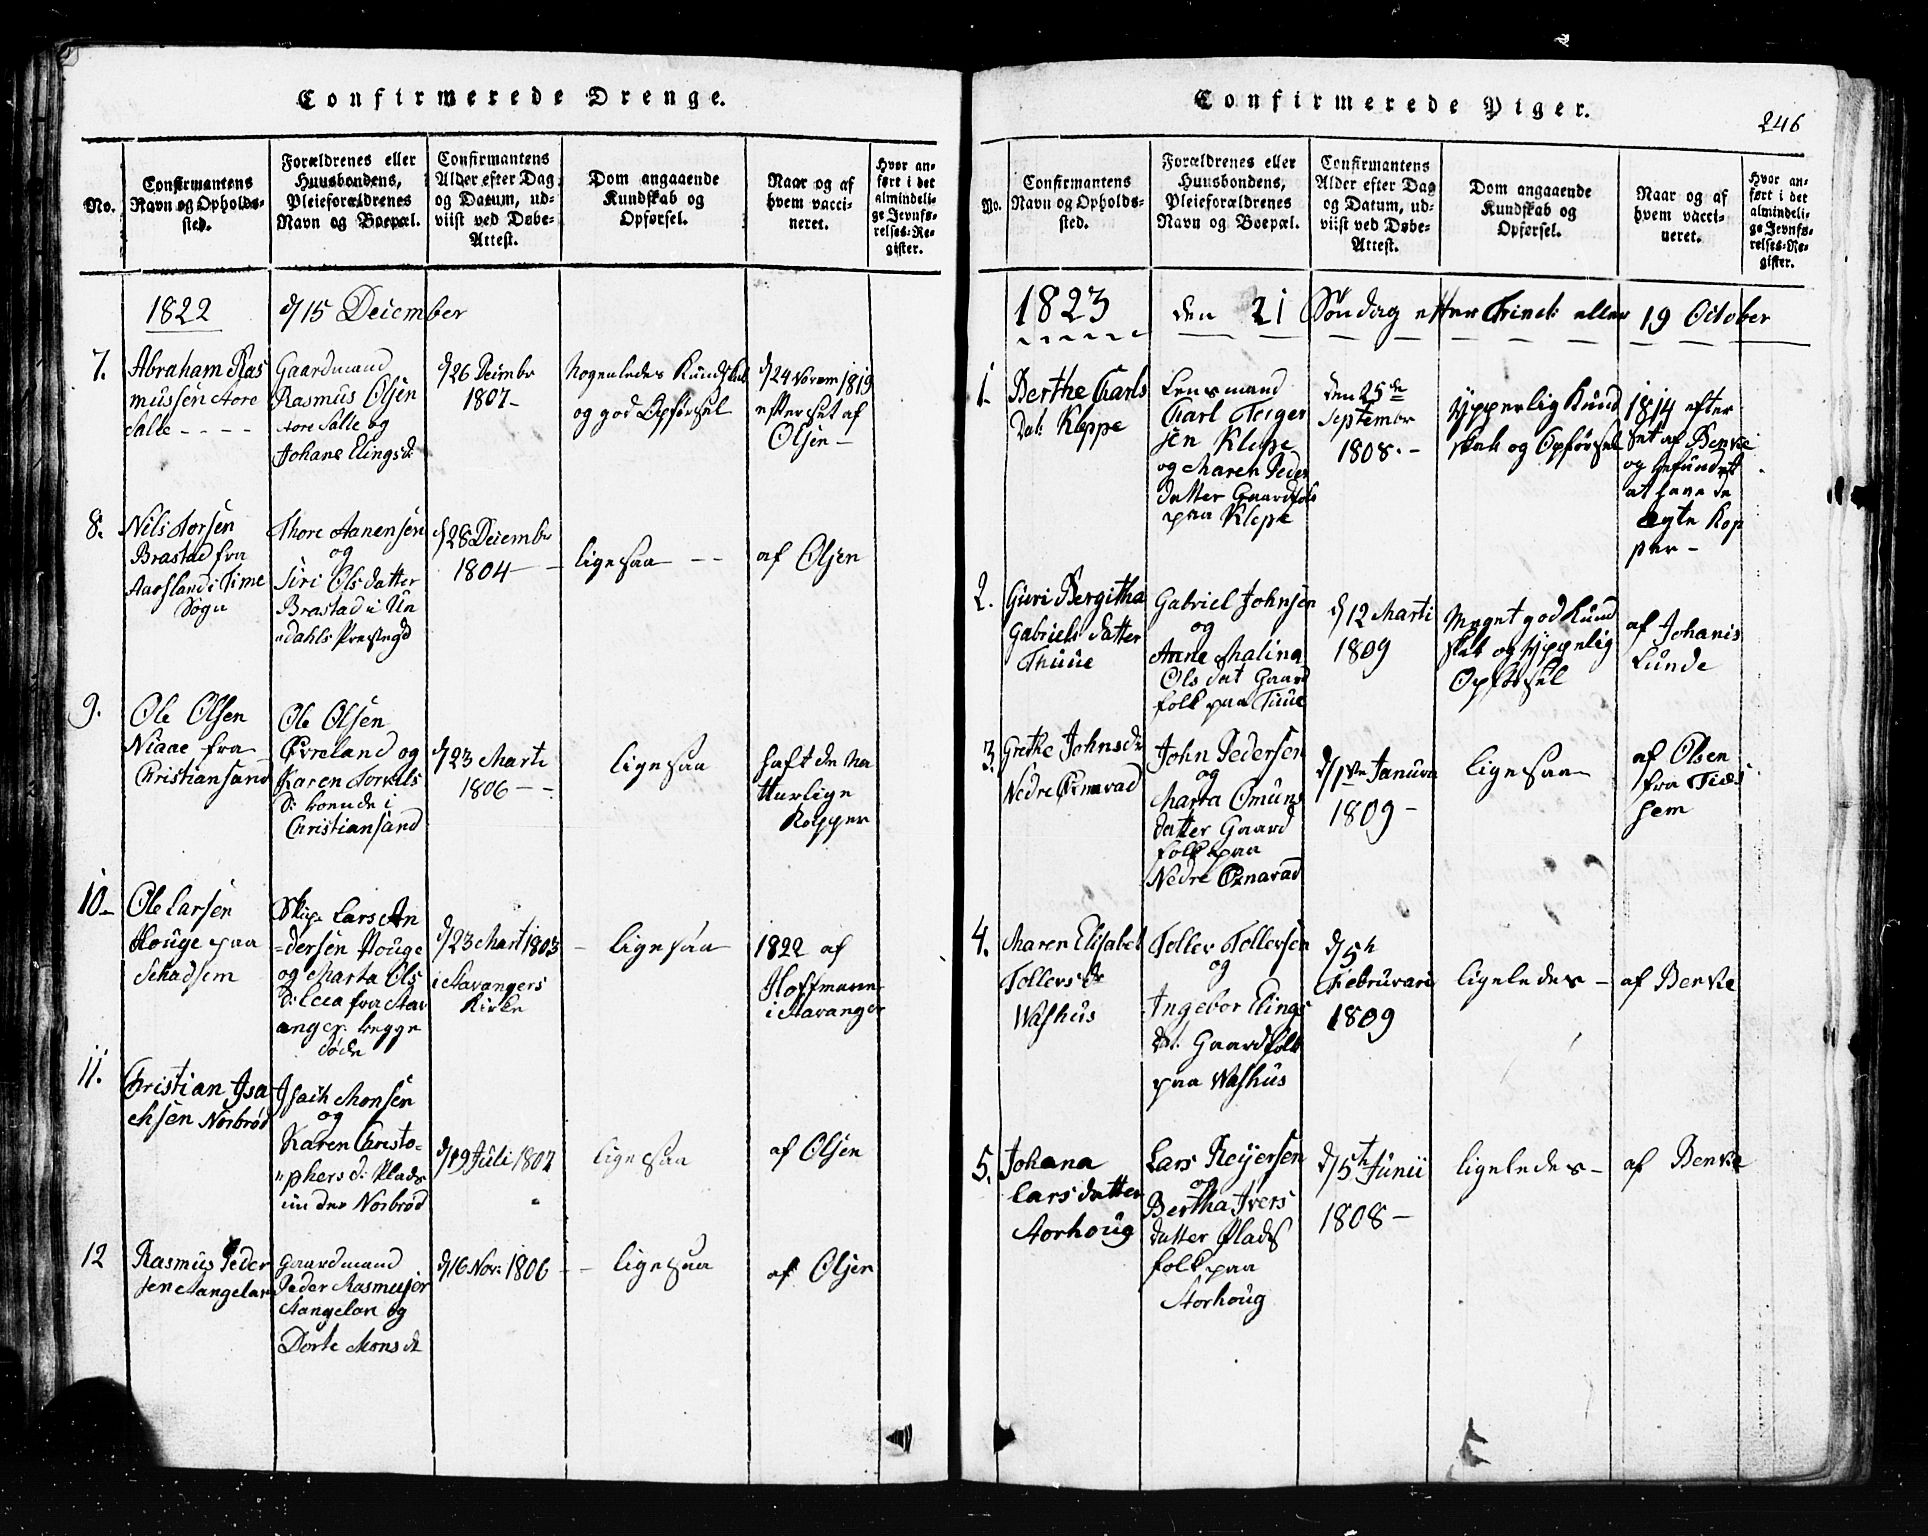 Confirmerede Drenge.
No.
Confirmantens
Navn og Opholds-
sted.
Forældrenes eller
Huusbondens,
Pleieforældrenes
Navn og Boepæl.
Confirmantens
Alder efter Dag
og Datum, ud-
viist ved Døbe-
Attest.
Dom angaaende
Kundskab og
Opførsel.
Naar og af
hvem vacci-
neret.
Hvor an-
ført i det
almindeli-
ge Jevnfø-
relses-Re-
gister.
1822
d/15 December
7.
Abraham Ras
mussen Aore
Salle - - - -
Gaardmand
Rasmus Olsen
Aore Salle og
Johane Elings d:
d/26 Decembr
1807 -
Nogenledes Kundskab
og god Opførsel
d/24 Novem 1819
efterset af
Olsen -
8.
Nils Torsen
Brastad fra
Aarsland i Time
Sogn
Thore Aanensen
og
Siri Olsdatter
Brastad i Un
dahls Prestegd
d/28 Decembr
1804 -
ligesaa - -
af Olsen
9.
Ole Olsen
Niaae fra
Christiansand
Ole Olsen
Øvreland og
Karen Torkels
d: boende i
Christiansand
d/23 Marti
1806 - -
ligesaa
haft de na
turlige
Kopper
10 -
Ole Larsen
Houge paa
Schadsem
Skip. Lars An
=dersen Houge
og Marta Ols
d: fra Stav
anger begge
døde
d/23 Mart 1803
i Stavangers
Kirke
- ligesaa
1822 af
Hoffmann
i Stavanger
11.
Christian Isa
chsen Norbrød
Isach Monsen
og
Karen Christo=
"phers d: Plads
under Norbrød
d/19 Juli 1807
ligesaa
af Olsen
12
Rasmus Peder
sen Stangelan
Gaardmand
Peder Rasmusen
Stangelan og
Dorte Mons d
d/16 Nov: 1806 -
- ligesaa
af Olsen
Confirmerede Piger.
246
No.
Confirmantens
Navn og Opholds-
sted.
Forældrenes eller
Huusbondens,
Pleieforældrenes
Navn og Boepæl.
Confirmantens
Alder efter Dag
og Datum, ud-
viist ved Døbe-
Attest.
Dom angaaende
Kundskab og
Opførsel.
Naar og af
hvem vacci-
neret.
Hvor an-
ført i det
almindeli-
ge Jevnfø-
relses-Re-
gister.
1823
den 21 Søndag efter Trinit: eller 19 October
1.
Berthe Carls
Dat: Kleppe
Lensmand
Carl Terger
sen Kleppe
og Maren Peder
datter Gaardfolk
paa Kleppe
den 25de
September
1808. -
Ypperlig Kund
skab og Opførsel
1814 efter
set af Benke
og befundet
at have de
ægte Kop
per -
2.
Guri Bergitha
Gabriels datter
Thuue
Gabriel Johnsen
og
Anne Malina
Ols dat Gaard
folk paa Tuue
d/12 Marti
1809
Meget god Kund
skab og ypperlig
Opførsel
af Johanis
Lunde
3.
Grethe Johns dr
Nedre
John Pedersen
og
Marta Omuns
datter Gaard
folk paa
Nedre
d/1ste Januar
1809 -
ligesaa
af Olsen
fra Ties
hem
4.
Maren Elisabet
Tollers dr
Washus
Toller Tollersen
og
Ingebor Elings
dt: Gaardfolk
paa Washus
d/5th
Februari
1809
ligeledes -
af Benke
5.
Johana
Lars datter
Storhoug
Lars Reyersen
og
Bertha Ivers
datter Plads
folk paa
Storhoug
d/5te Junii
1808 -
ligeledes -
af Benke